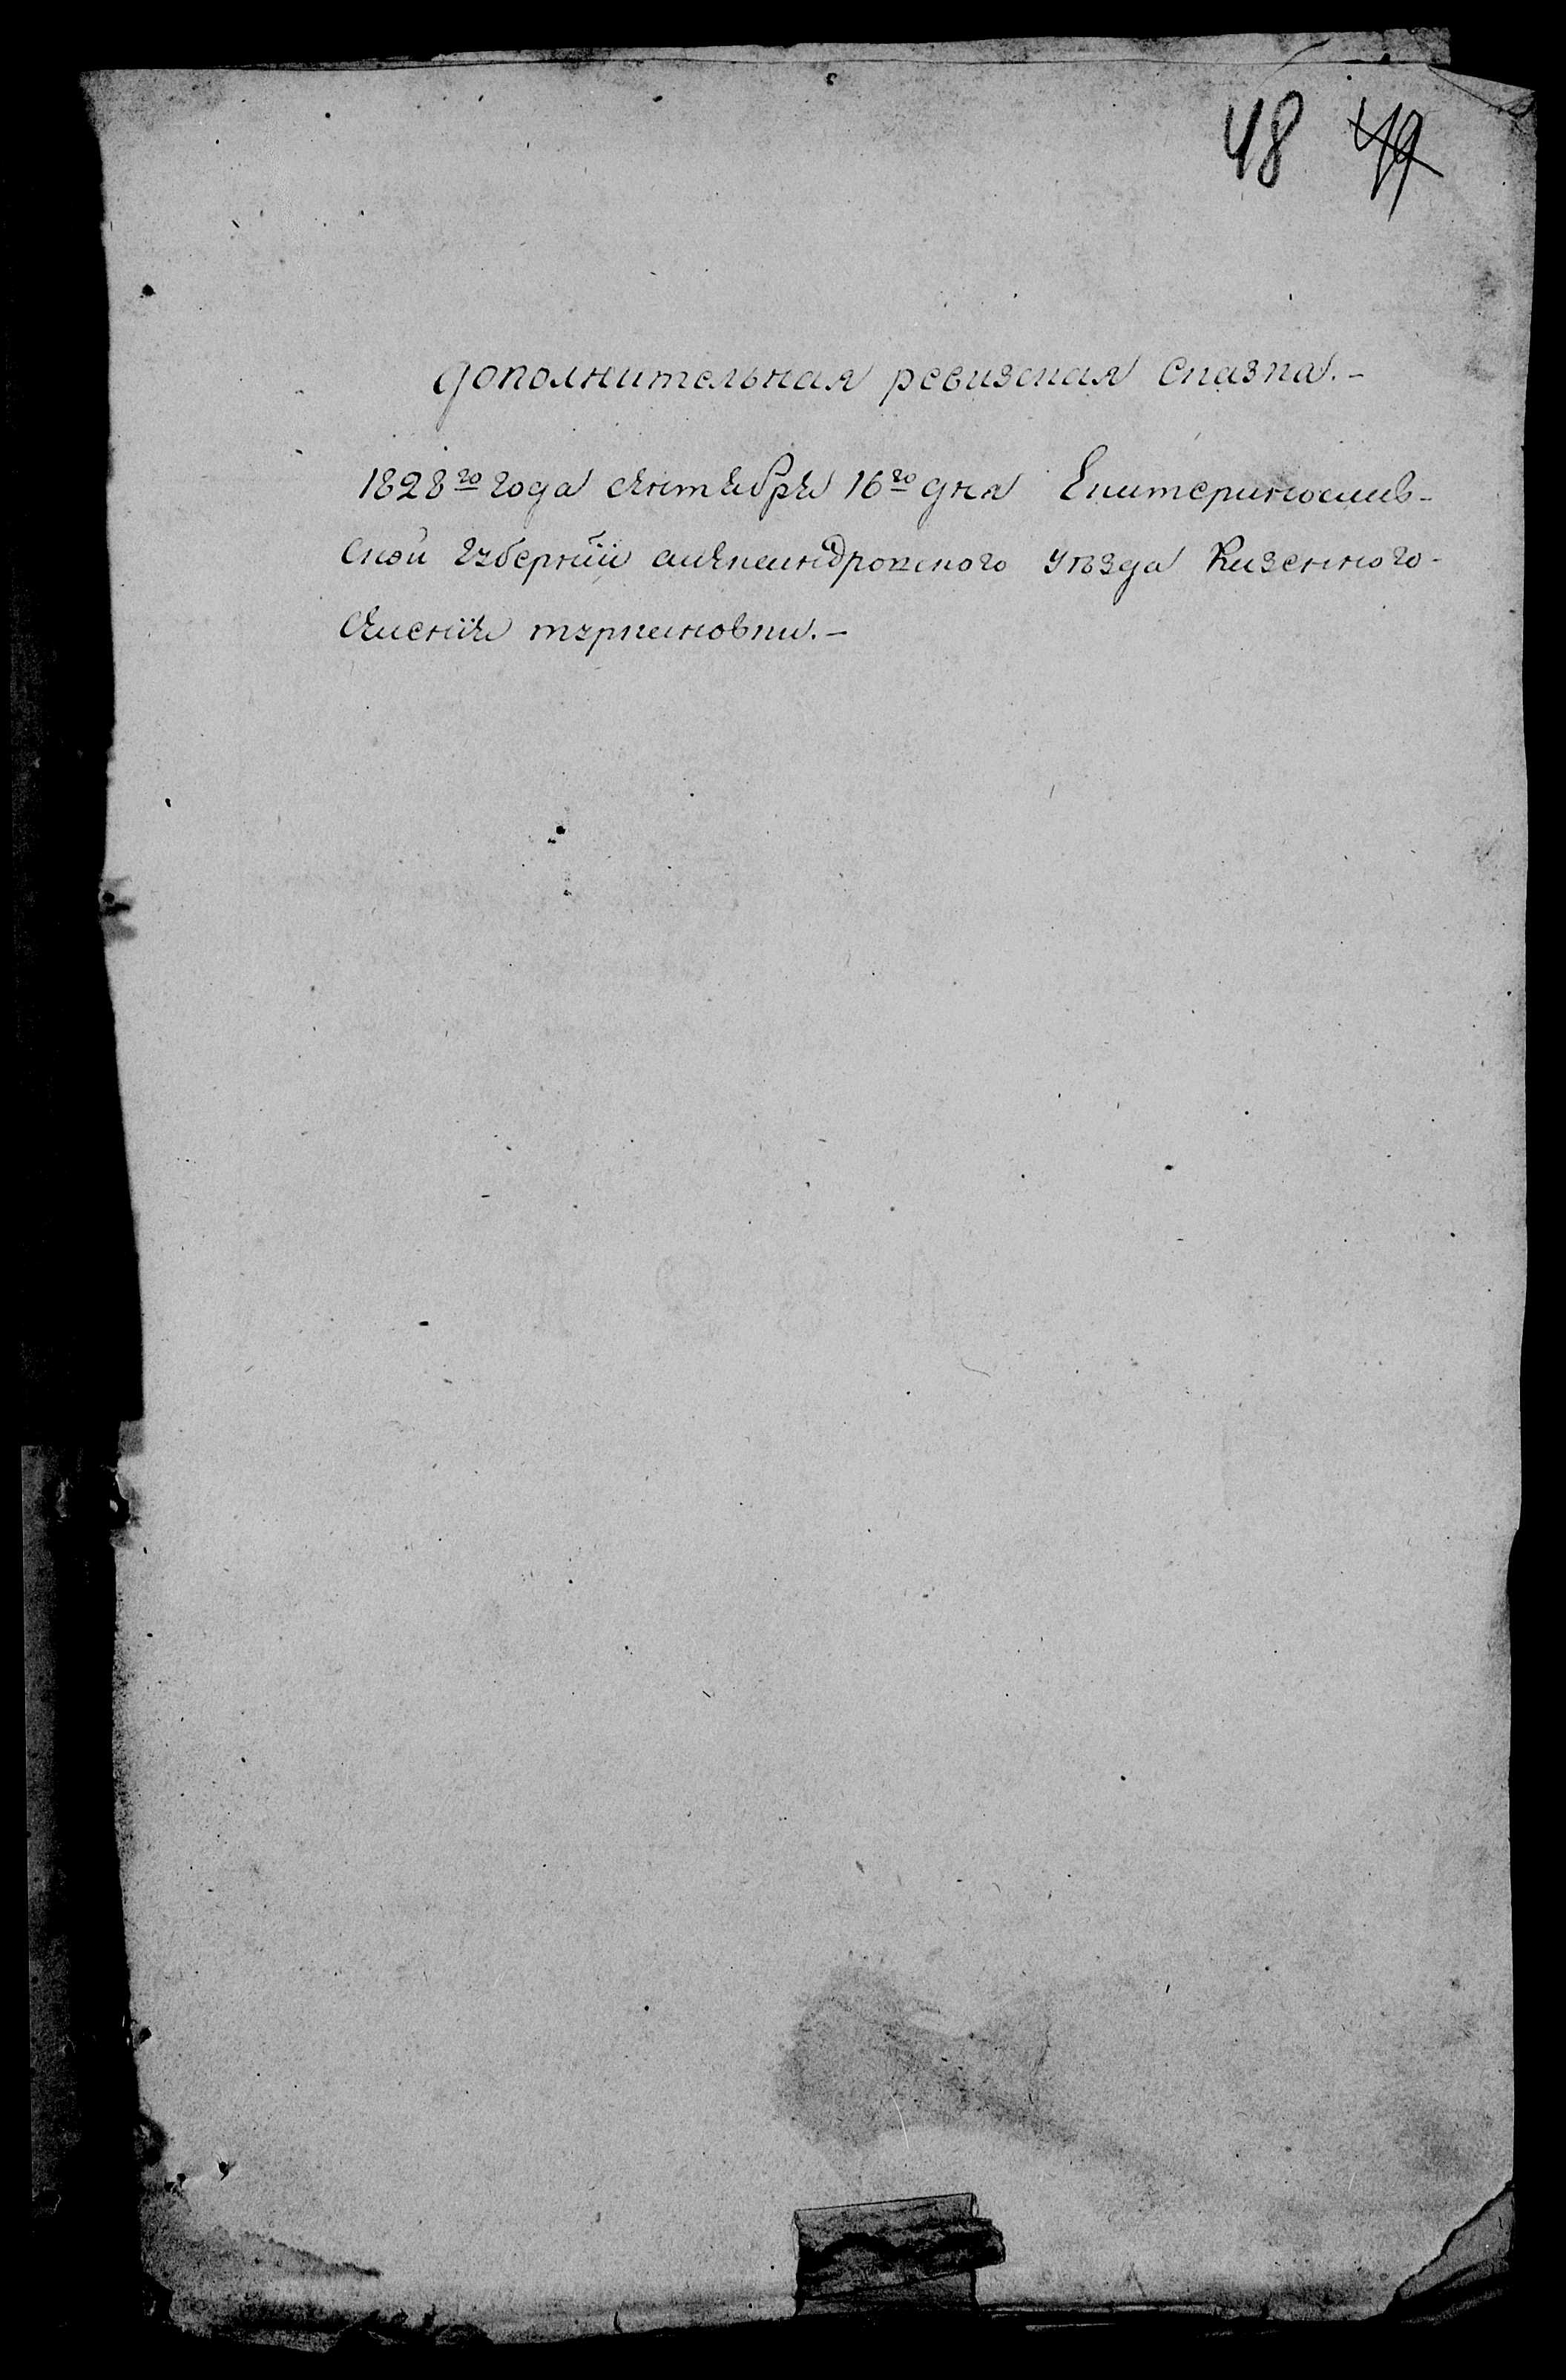 48 49
Дополнительная ревизская сказка.-
1828го года сентября 16го дня Екатеринослав-
ской губернии александровского уезда Казенного-
селения туркеновки.-